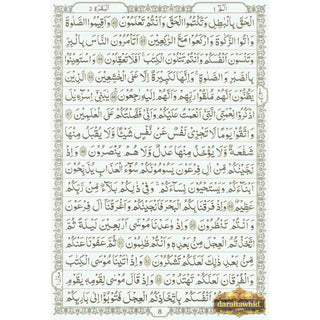 البقرة ٢
الٓمّ ١
الْحَقَّ بِالْبَاطِلِ وَتَكْتُمُوا الْحَقَّ وَاَنْتُمْ تَعْلَمُوْنَ ۝ وَاَقِيْمُوا الصَّلٰوةَ
وَاٰتُوا الزَّكٰوةَ وَارْكَعُوْا مَعَ الرّٰكِعِيْنَ ۝ اَتَاْمُرُوْنَ النَّاسَ بِالْبِرِّ
وَتَنْسَوْنَ اَنْفُسَكُمْ وَاَنْتُمْ تَتْلُوْنَ الْكِتٰبَ اَفَلَا تَعْقِلُوْنَ ۝ وَاسْتَعِيْنُوْا
بِالصَّبْرِ وَالصَّلٰوةِ وَاِنَّهَا لَكَبِيْرَةٌ اِلَّا عَلَى الْخٰشِعِيْنَ ۝ الَّذِيْنَ
يَظُنُّوْنَ اَنَّهُمْ مُّلٰقُوْا رَبِّهِمْ وَاَنَّهُمْ اِلَيْهِ رٰجِعُوْنَ ۝ يٰبَنِيْٓ اِسْرَآءِيْلَ
اذْكُرُوْا نِعْمَتِيَ الَّتِيْٓ اَنْعَمْتُ عَلَيْكُمْ وَاَنِّيْ فَضَّلْتُكُمْ عَلَى الْعٰلَمِيْنَ ۝
وَاتَّقُوْا يَوْمًا لَّا تَجْزِيْ نَفْسٌ عَنْ نَّفْسٍ شَيْئًا وَّلَا يُقْبَلُ مِنْهَا
شَفَاعَةٌ وَّلَا يُؤْخَذُ مِنْهَا عَدْلٌ وَّلَا هُمْ يُنْصَرُوْنَ ۝ وَاِذْ
نَجَّيْنٰكُمْ مِّنْ اٰلِ فِرْعَوْنَ يَسُوْمُوْنَكُمْ سُوْٓءَ الْعَذَابِ يُذَبِّحُوْنَ
اَبْنَآءَكُمْ وَيَسْتَحْيُوْنَ نِسَآءَكُمْ وَفِيْ ذٰلِكُمْ بَلَآءٌ مِّنْ رَّبِّكُمْ
عَظِيْمٌ ۝ وَاِذْ فَرَقْنَا بِكُمُ الْبَحْرَ فَاَنْجَيْنٰكُمْ وَاَغْرَقْنَآ اٰلَ فِرْعَوْنَ
وَاَنْتُمْ تَنْظُرُوْنَ ۝ وَاِذْ وٰعَدْنَا مُوْسٰٓى اَرْبَعِيْنَ لَيْلَةً ثُمَّ
اتَّخَذْتُمُ الْعِجْلَ مِنْۢ بَعْدِهٖ وَاَنْتُمْ ظٰلِمُوْنَ ۝ ثُمَّ عَفَوْنَا عَنْكُمْ
مِّنْۢ بَعْدِ ذٰلِكَ لَعَلَّكُمْ تَشْكُرُوْنَ ۝ وَاِذْ اٰتَيْنَا مُوْسَى الْكِتٰبَ
وَالْفُرْقَانَ لَعَلَّكُمْ تَهْتَدُوْنَ ۝ وَاِذْ قَالَ مُوْسٰى لِقَوْمِهٖ يٰقَوْمِ
اِنَّكُمْ ظَلَمْتُمْ اَنْفُسَكُمْ بِاتِّخَاذِكُمُ الْعِجْلَ فَتُوْبُوْٓا اِلٰى بَارِئِكُمْ
8
daraltawhid